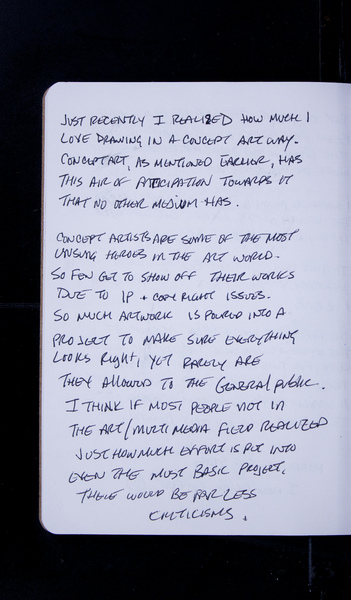 JUST RECENTLY I REALIZED HOW MUCH I
LOVE DRAWING IN A CONCEPT ART WAY.
CONCEPT ART, AS MENTIONED EARLIER, HAS
THIS AIR OF ATICIPATION TOWARDS IT
THAT NO OTHER MEDIUM HAS.
CONCEPT ARTISTS ARE SOME OF THE MOST
UNSUNG HEROES IN THE ART WORLD.
SO FEW GET TO SHOW OFF THEIR WORKS
DUE TO IP + COPY RIGHT ISSUES.
SO MUCH ARTWORK IS POURED INTO A
PROJECT TO MAKE SURE EVERYTHING
LOOKS RIGHT, YET RARELY ARE
THEY ALLOWED TO THE GENERAL PUBLIC.
I THINK IF MOST PEOPLE NOT IN
THE ART/MULTIMEDIA FIELD REALIZED
JUST HOW MUCH EFFORT IS PUT INTO
EVEN THE MOST BASIC PROJECT,
THERE WOULD BE FAR LESS
CRITICISMS.